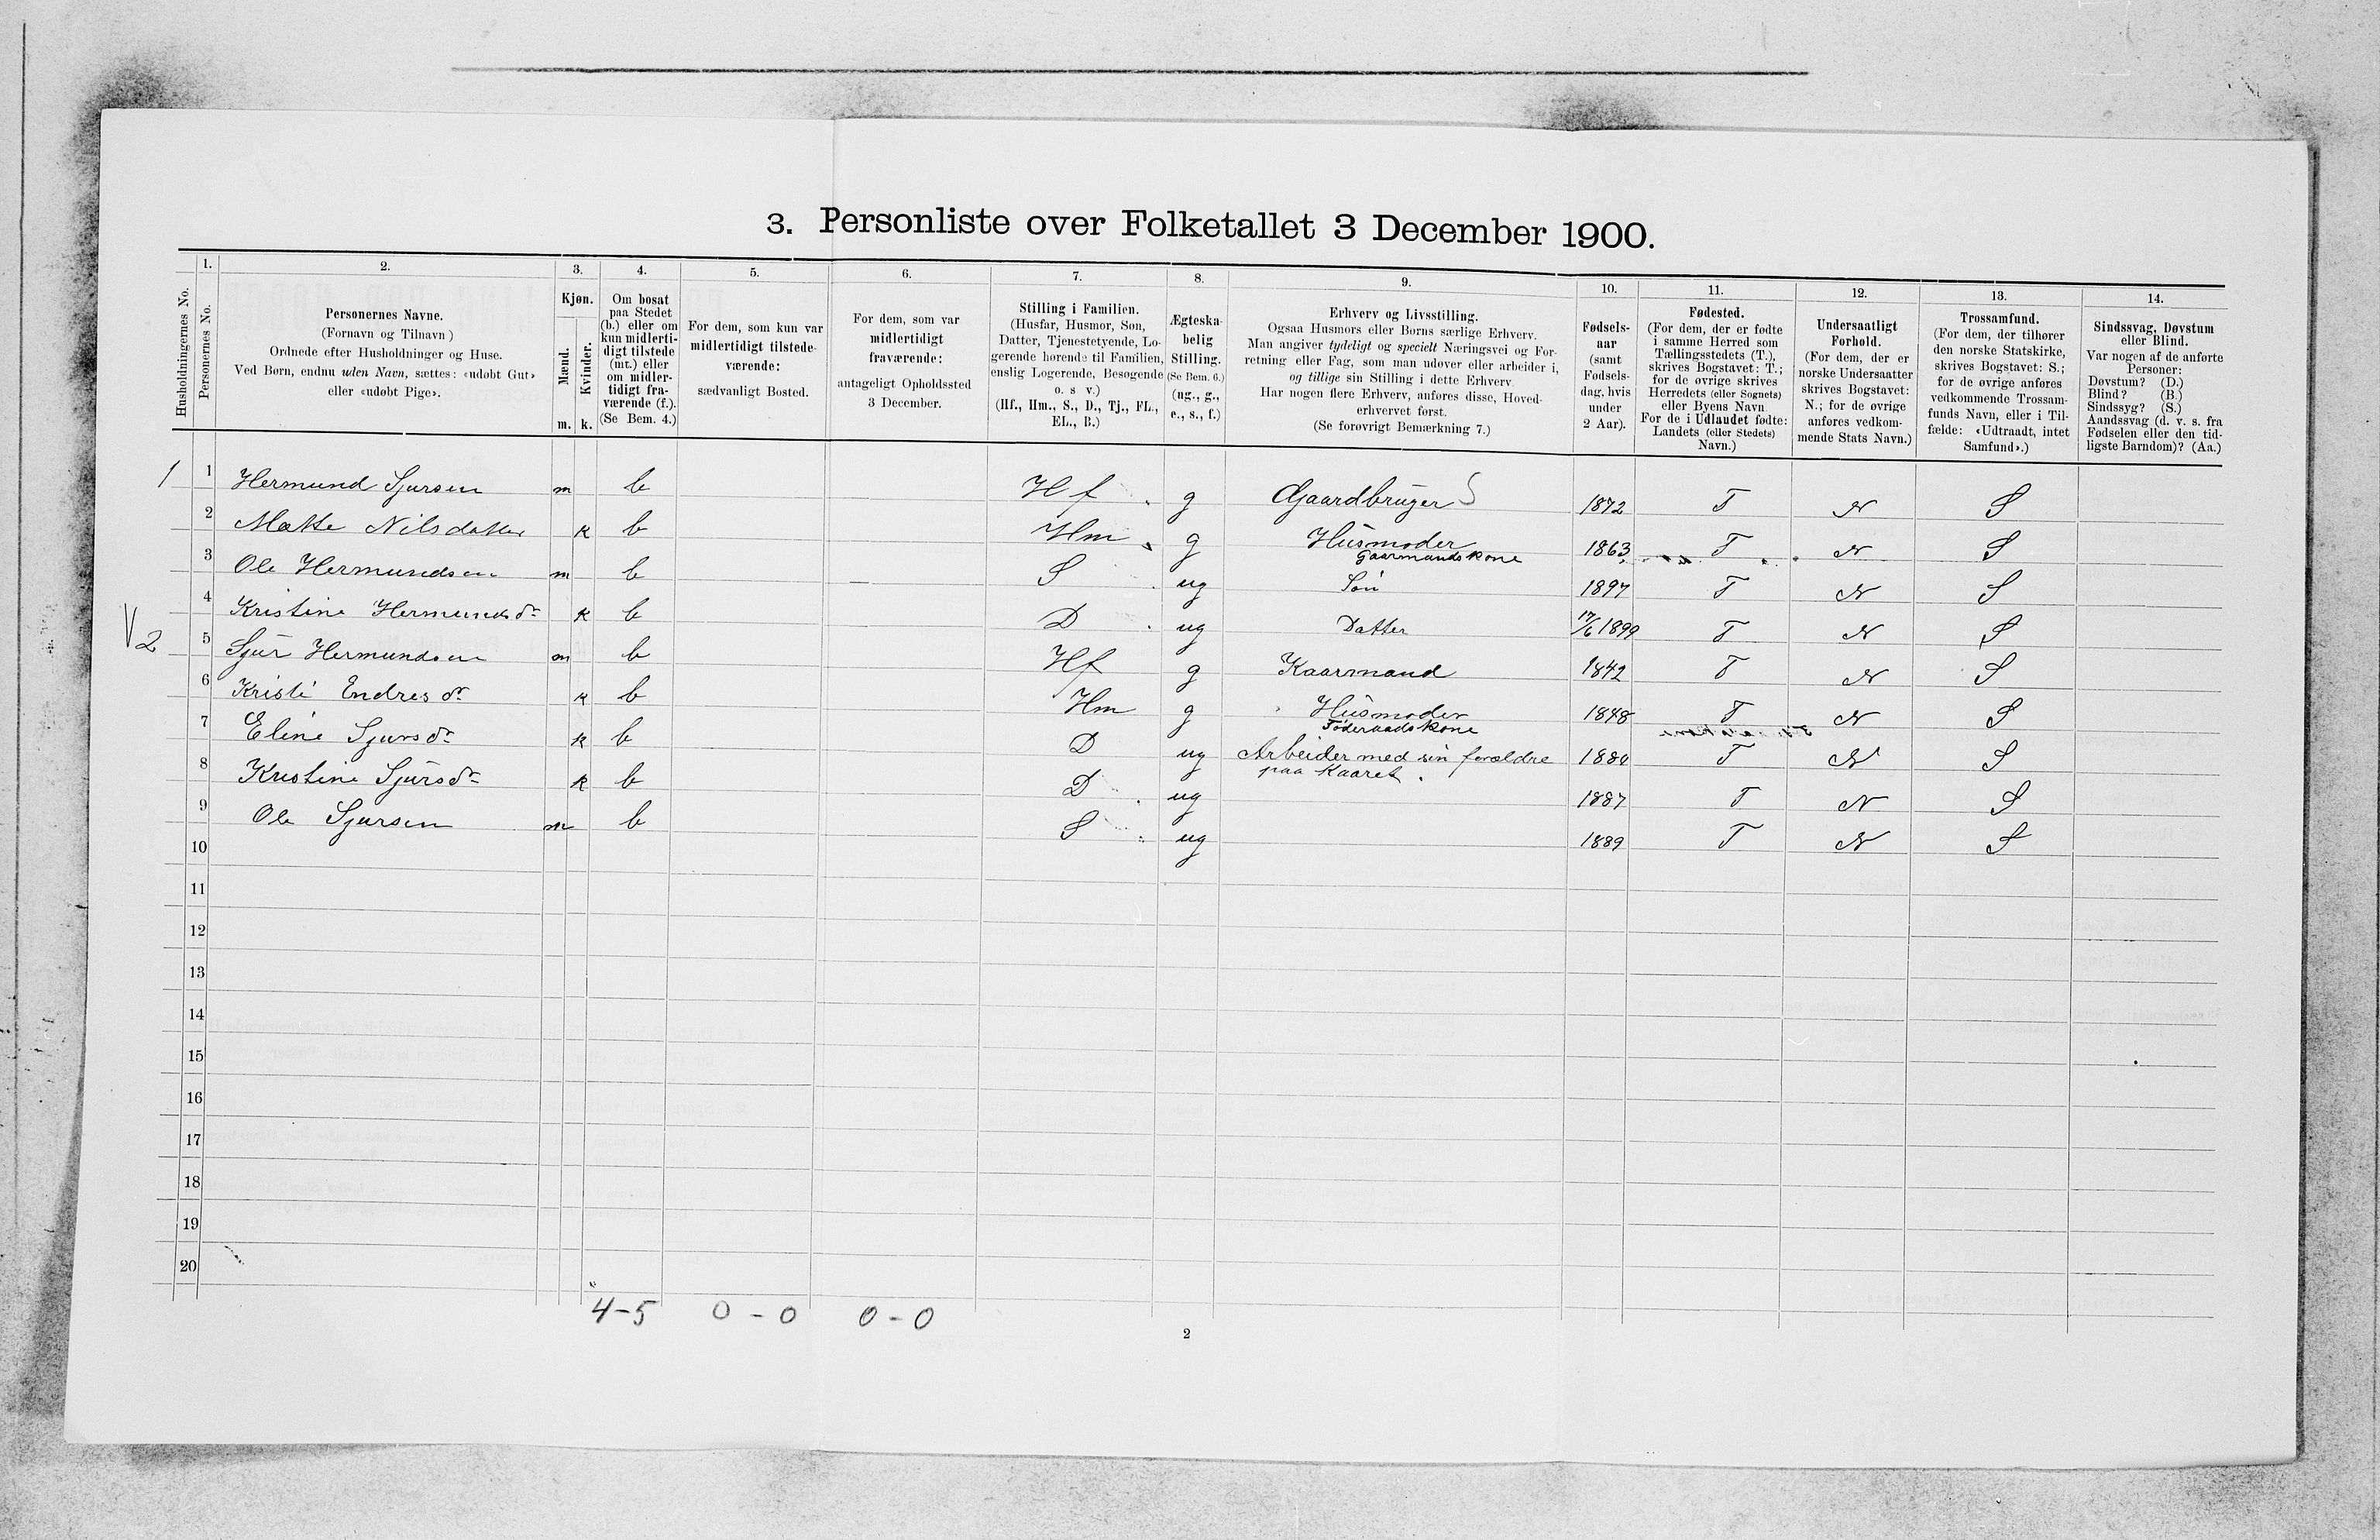 3. Personliste over Folketallet 3 December 1900.
1. 2. 3. 4. 5. 6. 7. 8. 9. 10. 11. 12. 13. 14.
Husholdningernes No.
Personernes No.
Personernes Navne.
(Fornavn og Tilnavn)
Ordnede efter Husholdninger og Huse.
Ved Børn, endnu uden Navn, sættes: «udøbt Gut»
eller «udøbt Pige».
Kjøn.
Mænd.
Kvinder.
m. k.
Om bosat
paa Stedet
(b.) eller om
kun midlerti-
digt tilstede
(mt.) eller
om midler-
tidigt fra-
værende (f.).
(Se Bem. 4.)
For dem, som kun var
midlertidigt tilstede-
værende:
sædvanligt Bosted.
For dem, som var
midlertidigt
fraværende:
antageligt Opholdssted
3 December.
Stilling i Familien.
(Husfar, Husmor, Søn,
Datter, Tjenestetyende, Lo-
gerende hørende til Familien,
enslig Logerende, Besøgende
o. s v.)
(Hf., Hm., S., D., Tj., FL.,
EL., B.)
Ægteska-
belig
Stilling.
(Se Bem. 6.)
(ug., g.,
e., s., f.)
Erhverv og Livsstilling.
Ogsaa Husmors eller Børns særlige Erhverv.
Man angiver tydeligt og specielt Næringsvei og For-
retning eller Fag, som man udøver eller arbeider i,
og tillige sin Stilling i dette Erhverv.
Har nogen flere Erhverv, anføres disse, Hoved-
erhvervet først.
(Se forøvrigt Bemærkning 7.)
Fødsels-
aar
(samt
Fødsels-
dag, hvis
under
2 Aar).
Fødested.
(For dem, der er fødte
i samme Herred som
Tællingsstedets (T.),
skrives Bogstavet: T.;
for de øvrige skrives
Herredets (eller Sognets)
eller Byens Navn
For de i Udlandet fødte:
Landets (eller Stedets)
Navn.)
Undersaatligt
Forhold.
(For dem, der er
norske Undersaatter
skrives Bogstavet:
N.; for de øvrige
anføres vedkom-
mende Stats Navn.)
Trossamfund.
(For dem, der tilhører
den norske Statskirke,
skrives Bogstavet: S.;
for de øvrige anføres
vedkommende Trossam-
funds Navn, eller i Til-
fælde: «Udtraadt, intet
Samfund».)
Sindssvag, Døvstum
eller Blind.
Var nogen af de anførte
Personer:
Døvstum? (D.)
Blind? (B.)
Sindssyg? (S.)
Aandssvag (d. v. s. fra
Fødselen eller den tid-
ligste Barndom)? (Aa.)
1 1 Hermund Sjursen m b Hf g Gaardbruger S 1872 T N S
2 Matte Nilsdatter k b Hm g Husmoder 1863 T N S
Gaarmandskone
3 Ole Hermundsen m b S ug Søn 1897 T N S
4 Kristine Hermundsdr k b D ug Datter 17/6 1899 T N S
2 5 Sjur Hermundsen m b Hf g Kaarmand 1842 T N S
6 Kristi Endresdr k b Hm g Husmoder 1848 T N S
Føderaadskone
7 Eline Sjursdr k b D ug Arbeider med sin forældre 1880 T N S
paa Kaaret.
8 Kristine Sjursdr k b D ug 1887 T N S
9 Ole Sjursen m b S ug 1889 T N S
10
11
12
13
14
15
16
17
18
19
20
4-5 0-0 0-0
2